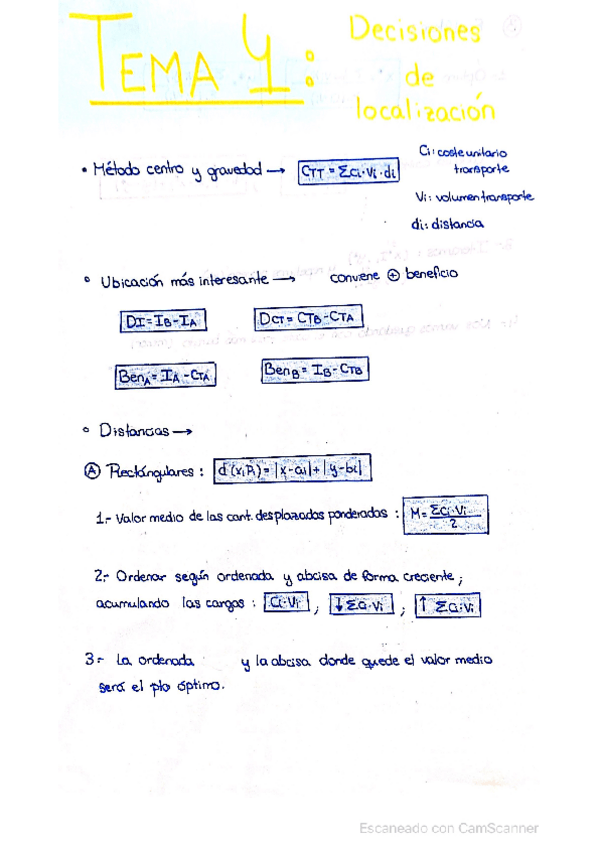 TEMA 4:
Decisiones
de
localización
• Método centro y gravedad → CTT = Σci·Vi·di
Ci: coste unitario
transporte
Vi: volumen transporte
di: distancia
• Ubicación más interesante → conviene ⊕ beneficio
DI = IB - IA
DCT = CTB - CTA
BenA = IA - CTA
BenB = IB - CTB
• Distancias →
Ⓐ Rectángulares: d(x,Pi) = |x-ai|+|y-bi|
1.- Valor medio de las cant. desplazadas ponderadas: M = ΣCi·Vi / 2
2.- Ordenar según ordenada y abcisa de forma creciente,
acumulando las cargas: Ci·Vi ; ↓ΣCi·Vi ; ↑ΣCi·Vi
3.- La ordenada y la abcisa donde quede el valor medio
será el pto óptimo.
Escaneado con CamScanner